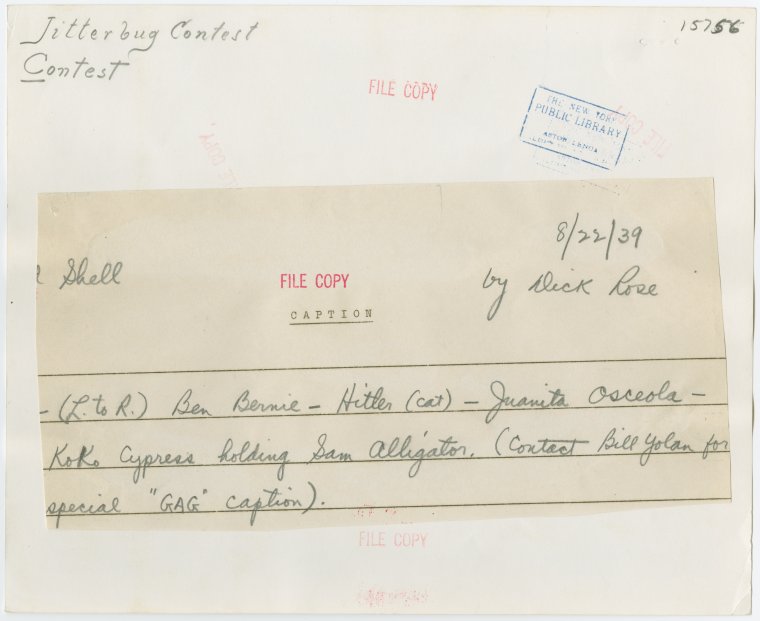 Jitterbug Contest
Contest
15756
FILE COPY
THE NEW YORK
PUBLIC LIBRARY
ASTOR LENOX
FILE COPY
FILE COPY
8/22/39
Shell
FILE COPY
by Dick Rose
CAPTION
- (L. to R.) Ben Bernie - Hitler (cat) - Juanita Osceola -
KoKo Cypress holding Sam Alligator. (Contact Bill Yolan for
special "GAG" caption).
FILE COPY